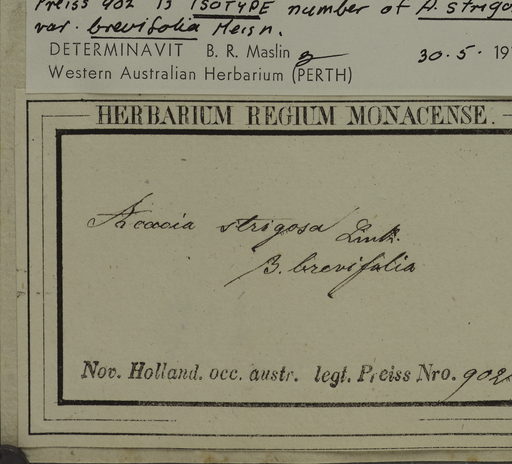 Preiss 902 is ISOTYPE number of A. strigo
var. brevifolia Meisn.
DETERMINAVIT B. R. Maslin 30.5.19
Western Australian Herbarium (PERTH)
HERBARIUM REGIUM MONACENSE.
Acacia strigosa Link.
β. brevifolia
Nov. Holland. occ. austr. legt. Preiss Nro. 902